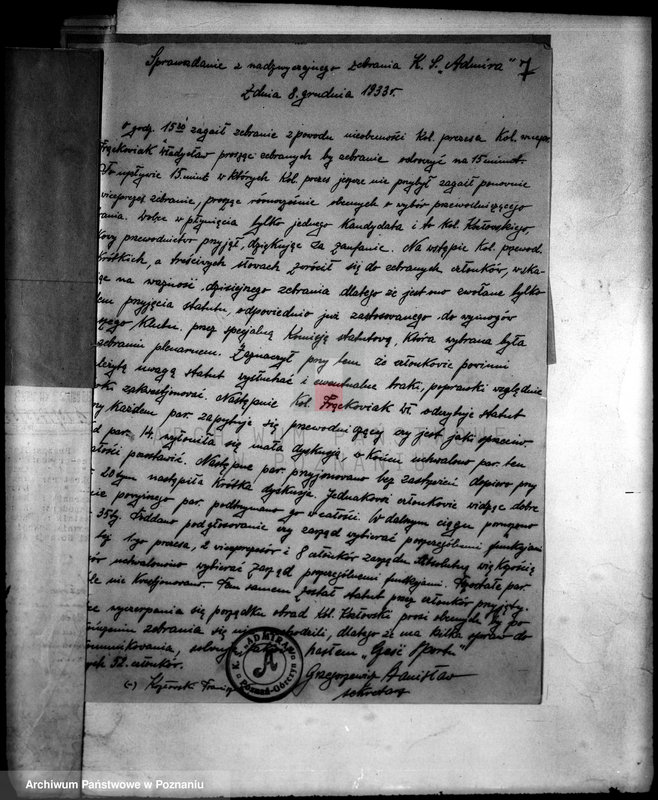 Sprawozdanie z nadzwyczajnego zebrania K. S. "Admira" 7
z dnia 8. grudnia 1933 r.
o godz. 15 zagaił zebranie z powodu nieobecności kol. prezesa kol.
Frąckowiak Władysław prosząc zebranych by zebranie odroczyć na 15 minut.
upływie 15. minut w których kol. prezes jeszcze nie przybył zagaił ponownie
viceprezes zebranie, prosząc równocześnie obecnych o wybór przewodniczącego
Wobec wpłynięcia tylko jednego kandydata i to kol. Kozłowskiego,
przewodnictwo przyjął, dziękując za zaufanie. Na wstępie kol. przewod.
krótkich, a treściwych słowach zwrócił się do zebranych członków, wska-
na ważność dzisiejszego zebrania dlatego że jest ono zwołane tylko
przyjęcia statutu, odpowiednio już zastosowanego do wymogów
klubu, przez specjalną Komisję statutową, która wybrana była
zebraniu plenarnem. Zaznaczył przy tem że członkowie powinni
uwagą statut wysłuchać i ewentualne braki, poprawki względnie
zakwestjonować. Następnie kol. Frąckowiak Wł. odczytuje statut
każdem par. zapytuje się przewodniczący czy jest jaki sprzeciw
par. 14. wyłoniła się mała dyskusja, w końcu uchwalono par. ten
pozostawić. Następne par. przyjmowano bez zastrzeżeń dopiero przy
20tym nastąpiła krótka dyskusja. Jednakowoż członkowie widząc dobre
powyższego par. podtrzymano go w całości. W dalszym ciągu
35ty. Poddano pod głosowanie czy zarząd wybierać poszczególnemi funkcjami
1-go prezesa, 2 viceprezesów i 8 członków zarządu. Absolutną większością
uchwalono wybierać zarząd poszczególnemi funkcjami. Pozostałe par.
nie kwestjonowano. Tem samem został statut przez członków przyjęty.
wyczerpania się porządku obrad kol. Kozłowski prosi obecnych by po
zebrania się nie rozchodzili, dlatego że ma kilka spraw do
zakomunikowania, hasłem "Cześć Sport"
członków.
(-) Kozłowski Franc. Grzegorzewicz Stanisław
sekretarz
K. S. "ADMIRA"
A
Poznań-Górczyn
ARCHIWUM PAŃSTWOWE
W POZNANIU
Archiwum Państwowe w Poznaniu